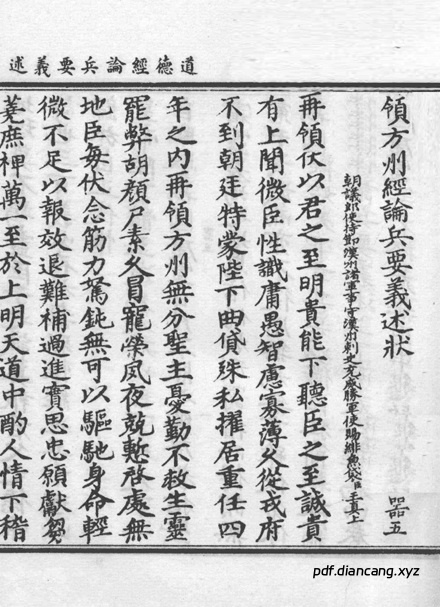 道德經論兵要義述
領方州經論兵要義述狀 器五
朝議郎使持節漢州諸軍事守漢州刺史充威勝軍使賜緋魚袋臣王真上
再領伏以君之至明貴能下聽臣之至誠貴
有上聞微臣性識庸愚智慮寡薄久從戎府
不到朝廷特蒙陛下曲貸殊私擢居重任四
年之内再領方州無分聖主憂勤不救生靈
罷弊胡顏尸素久冒寵榮夙夜兢慙啓處無
地臣每伏念筋力駑鈍無可以驅馳身命輕
微不足以報效退難補過進實思忠願獻芻
蕘庶裨萬一至於上明天道中酌人情下稽
pdf.diancang.xyz